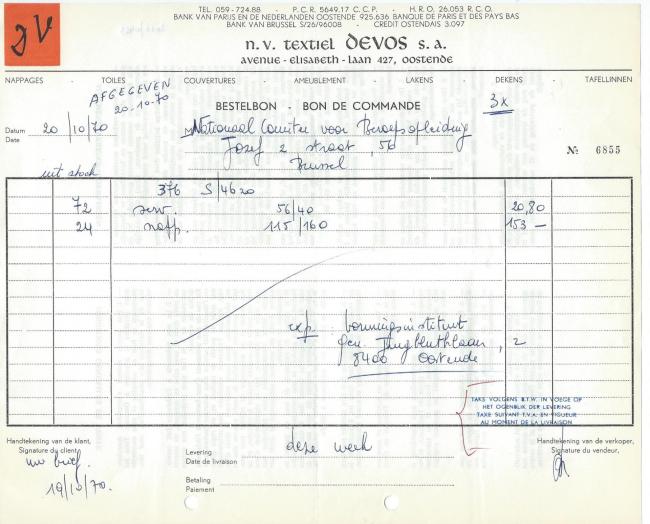 TEL. 059 - 724.88 - P.C.R. 5649.17 C.C.P. - H.R.O. 26.053 R.C.O.
BANK VAN PARIJS EN DE NEDERLANDEN OOSTENDE 925.636 BANQUE DE PARIS ET DES PAYS BAS
BANK VAN BRUSSEL S/26/96008 - CREDIT OSTENDAIS 3.097
JV
n.v. textiel DEVOS s.a.
avenue - elisabeth - laan 427, oostende
NAPPAGES - TOILES - COUVERTURES - AMEUBLEMENT - LAKENS - DEKENS - TAFELLINNEN
AFGEGEVEN
20-10-70
BESTELBON - BON DE COMMANDE
3x
Datum 20/10/70
Date
M Nationaal Comitee voor Beroepsopleiding
Jozef 2 straat, 56
Brussel
№ 6855
uit stock
376 S/4620
72 serv. 56/40 20,80
24 napp. 115/160 153 —
exp. 
Gen. Jungbluthlaan, 2
8400 Oostende
TAKS VOLGENS B.T.W. IN VOEGE OP
HET OGENBLIK DER LEVERING
TAXE SUIVANT T.V.A. EN VIGUEUR
AU MOMENT DE LA LIVRAISON
Handtekening van de klant,
Signature du client,
uw brief.
19/10/70.
Levering deze week
Date de livraison
Betaling
Paiement
Handtekening van de verkoper,
Signature du vendeur,